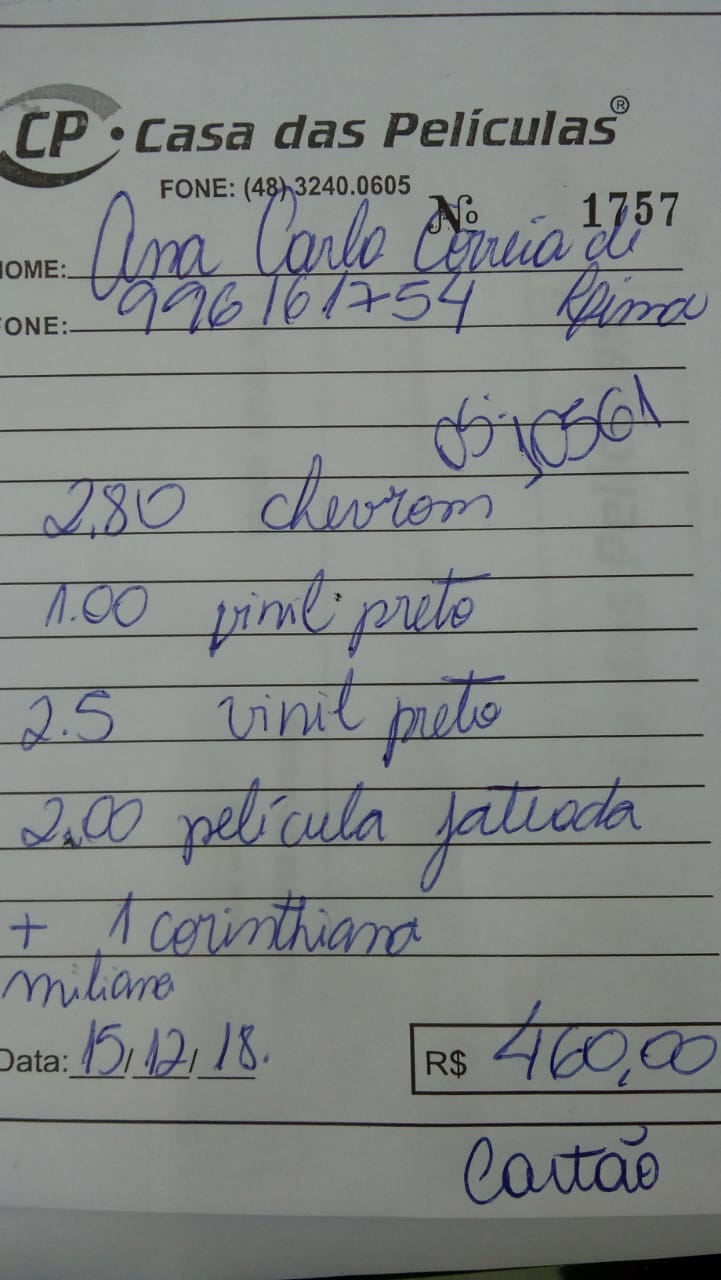 CP • Casa das Películas®
FONE: (48) 3240.0605
Nº 1757
NOME: Ana Carla Correia de
FONE: 996161754 Lima
OS: 10561
2,80 chevrom
1.00 vinil preto
2.5 vinil preto
2,00 película jateada
+ 1 corinthiana
miliane
Data: 15/12/18.
R$ 460,00
Cartão